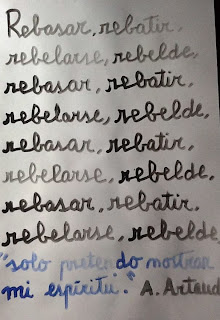 Rebasar, rebatir,
rebelarse, rebelde,
rebasar, rebatir,
rebelarse, rebelde,
rebasar, rebatir,
rebelarse, rebelde,
rebasar, rebatir.
rebelarse, rebelde,
"solo pretendo mostrar
mi espíritu." A. Artaud